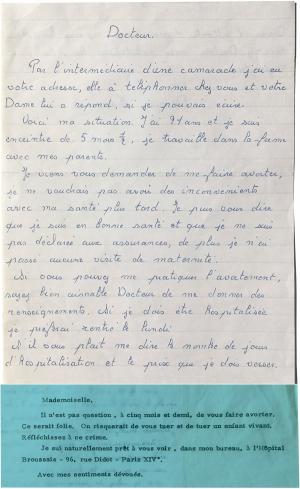 Docteur.
Par l'intermédiaire d'une camarade j'ai eu
votre adresse, elle à téléphonner chez vous et votre
Dame lui a répond, si je pouvais écrire.
Voici ma situation. J'ai 21 ans et je suis
enceinte de 5 mois ½, je travaille dans la ferme
avec mes parents.
Je viens vous demander de me faire avorter,
je ne voudrais pas avoir des inconvenients
avec ma santé plus tard. Je puis vous dire
que je suis en bonne santé et que je ne suis
pas déclarée aux assurances, de plus je n'ai
passé aucune visite de maternité.
Si vous pouvez me pratiquer l'avortement,
soyez bien aimable Docteur de me donner des
renseignements. Si je dois être hospitalisée
je préfèrai rentré le lundi
S'il vous plait me dire le nombre de jours
d'hospitalisation et le prix que je dois verser.
Mademoiselle,
Il n'est pas question, à cinq mois et demi, de vous faire avorter.
Ce serait folie. On risquerait de vous tuer et de tuer un enfant vivant.
Réfléchissez à ce crime.
Je suis naturellement prêt à vous voir, dans mon bureau, à l'Hôpital
Broussais - 96, rue Didot - Paris XIV°.
Avec mes sentiments dévoués.